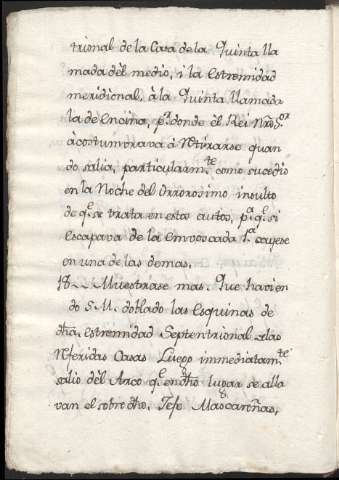 trional de la Casa de la Quinta lla
mada dêl medio, i la estremidad
meridional, â la Quinta llamada
la de encima, p.r donde êl Rei Nrô S.or
âcostumbrava â Retirarse quan
do salia, particularm.te como sucedio
en la Noche del Orrorosimo insulto
de q.e se trata en estos autos, p.a q.e si
escapava de la emvoscada 1.a cayese
en una de las demas.
18~~Muestrase mas. Que havien
do S.M. doblado las Esquinas de
dha. estremidad Septentrional de las
Referidas Casas Luego immediatam.te
salio dêl Arco q.e en dho lugar se alla
van el sobre dho. Jefe Mascareñas,